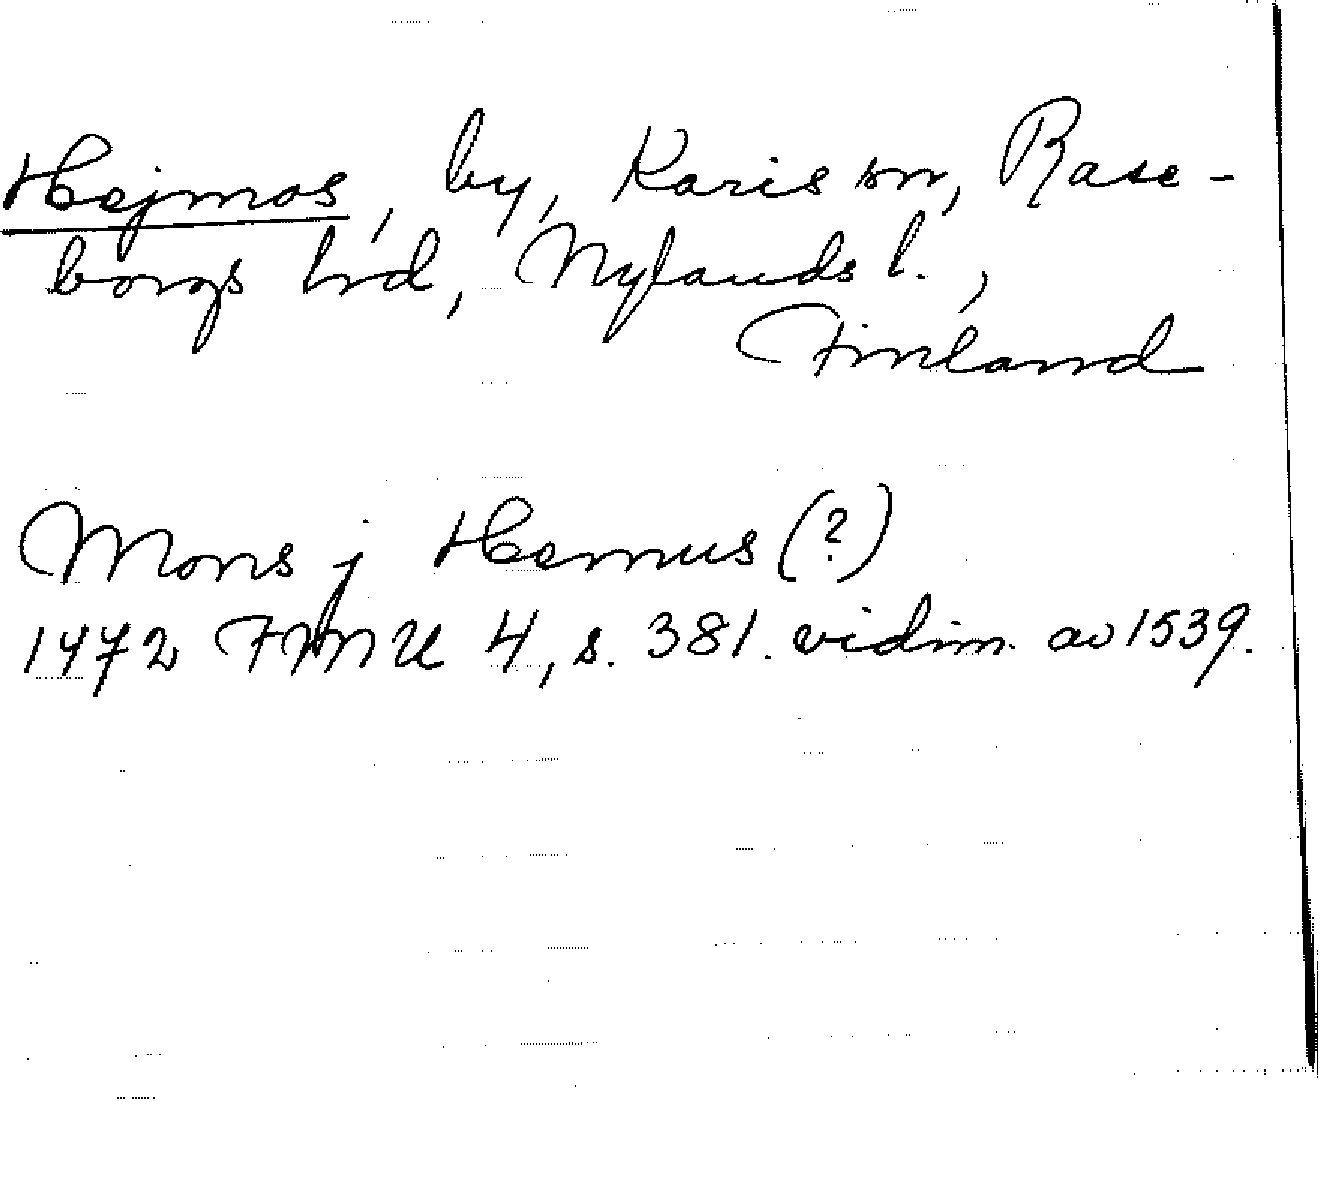 Hejmos, by, Karis sn, Rase-
borgs hrd, Nylands l.,
Finland
Mons j Hemus (?)
1472 FMU 4, s. 381. vidim. av 1539.